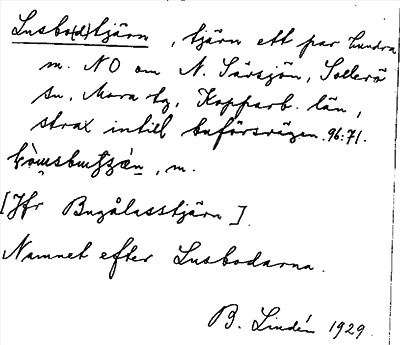 Lusbo(d)tjärn, tjärn ett par hundra
m. NO om N. Särsjön, Sollerö
sn, Mora tg, Kopparb. län,
strax intill buförsvägen. 96:71.
, m.
[Jfr Bugålasstjärn].
Namnet efter Lusbodarna.
B. Lindén 1929.